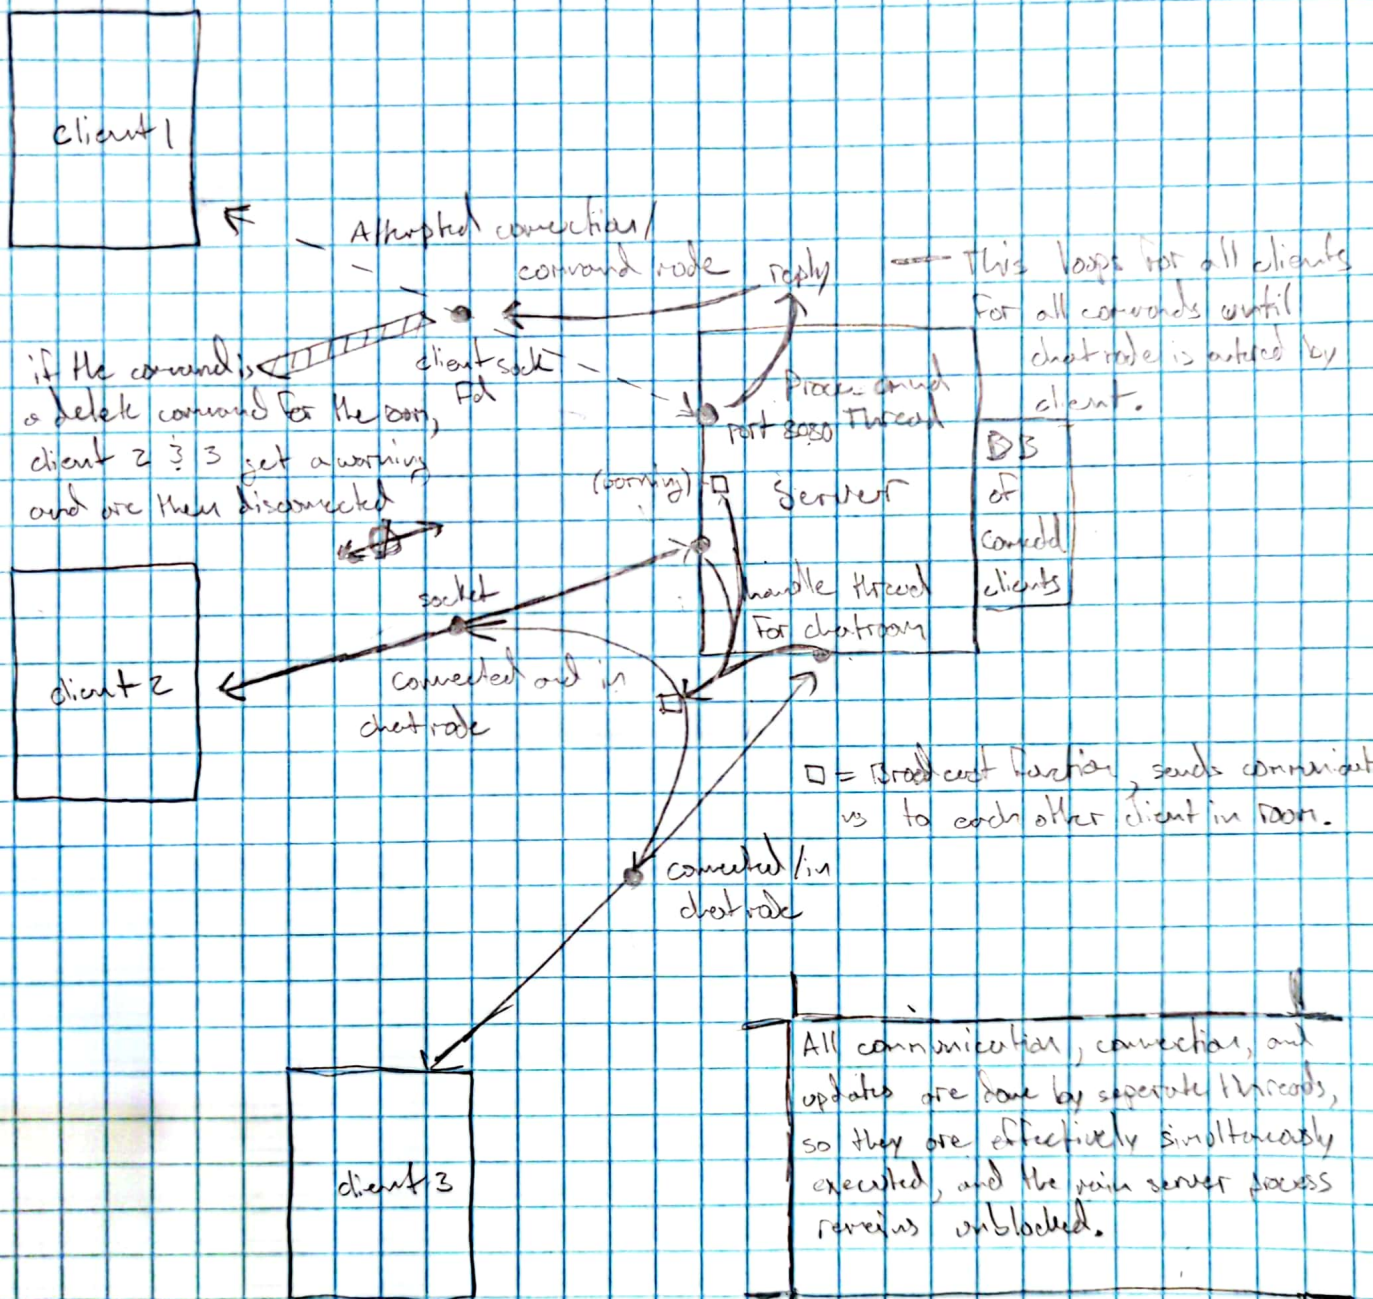 client 1
Attempted connection/
command mode
reply
— This loops for all clients
for all commands until
chatmode is entered by
client.
client sock
Fd
if the command is
a delete command for the room,
client 2 & 3 get a warning
and are then disconnected
Process cmd
Thread
port 8080
(warning)
Server
DB
of
connectd
clients
handle thread
for chatroom
socket
connected and in
chatmode
client 2
□ = Broadcast Function, sends communicat
to each other client in room.
connected/in
chatmode
client 3
All communication, connection, and
updates are done by seperate threads,
so they are effectively simultaneously
executed, and the main server process
remains unblocked.